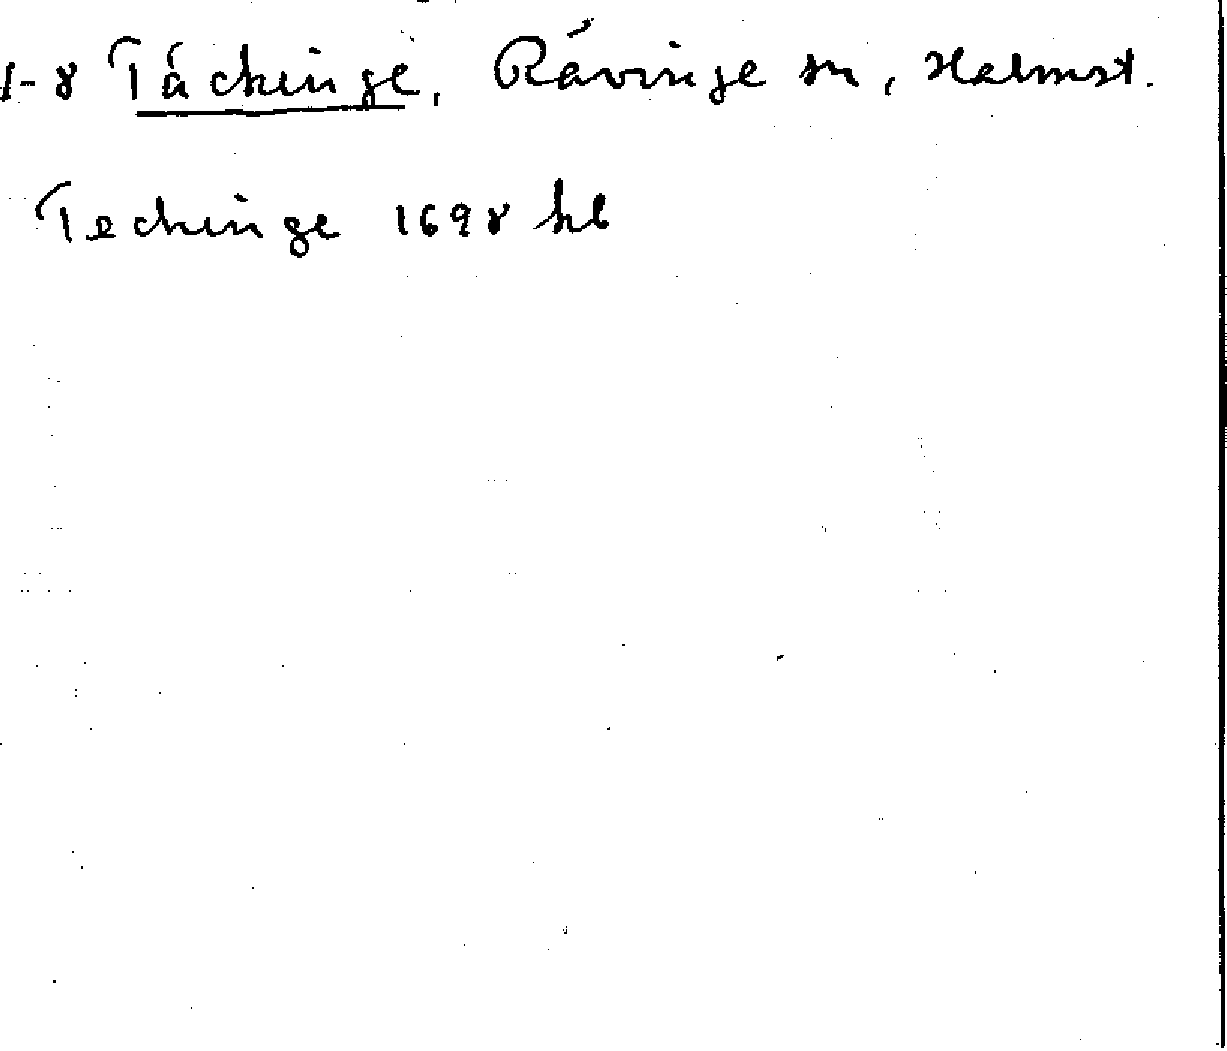 1-8 Täckinge, Rävinge sn, Halmst.
Teckinge 1698